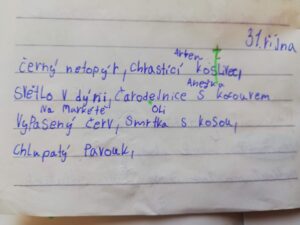 31. října
Artem
černý netopýr, chrastící kostlivec,
Anežka
světlo v dýni, čarodejnice s kocourem
Na Markétě Oli
vypasený červ, smrtka s kosou,
chlupatý pavouk,